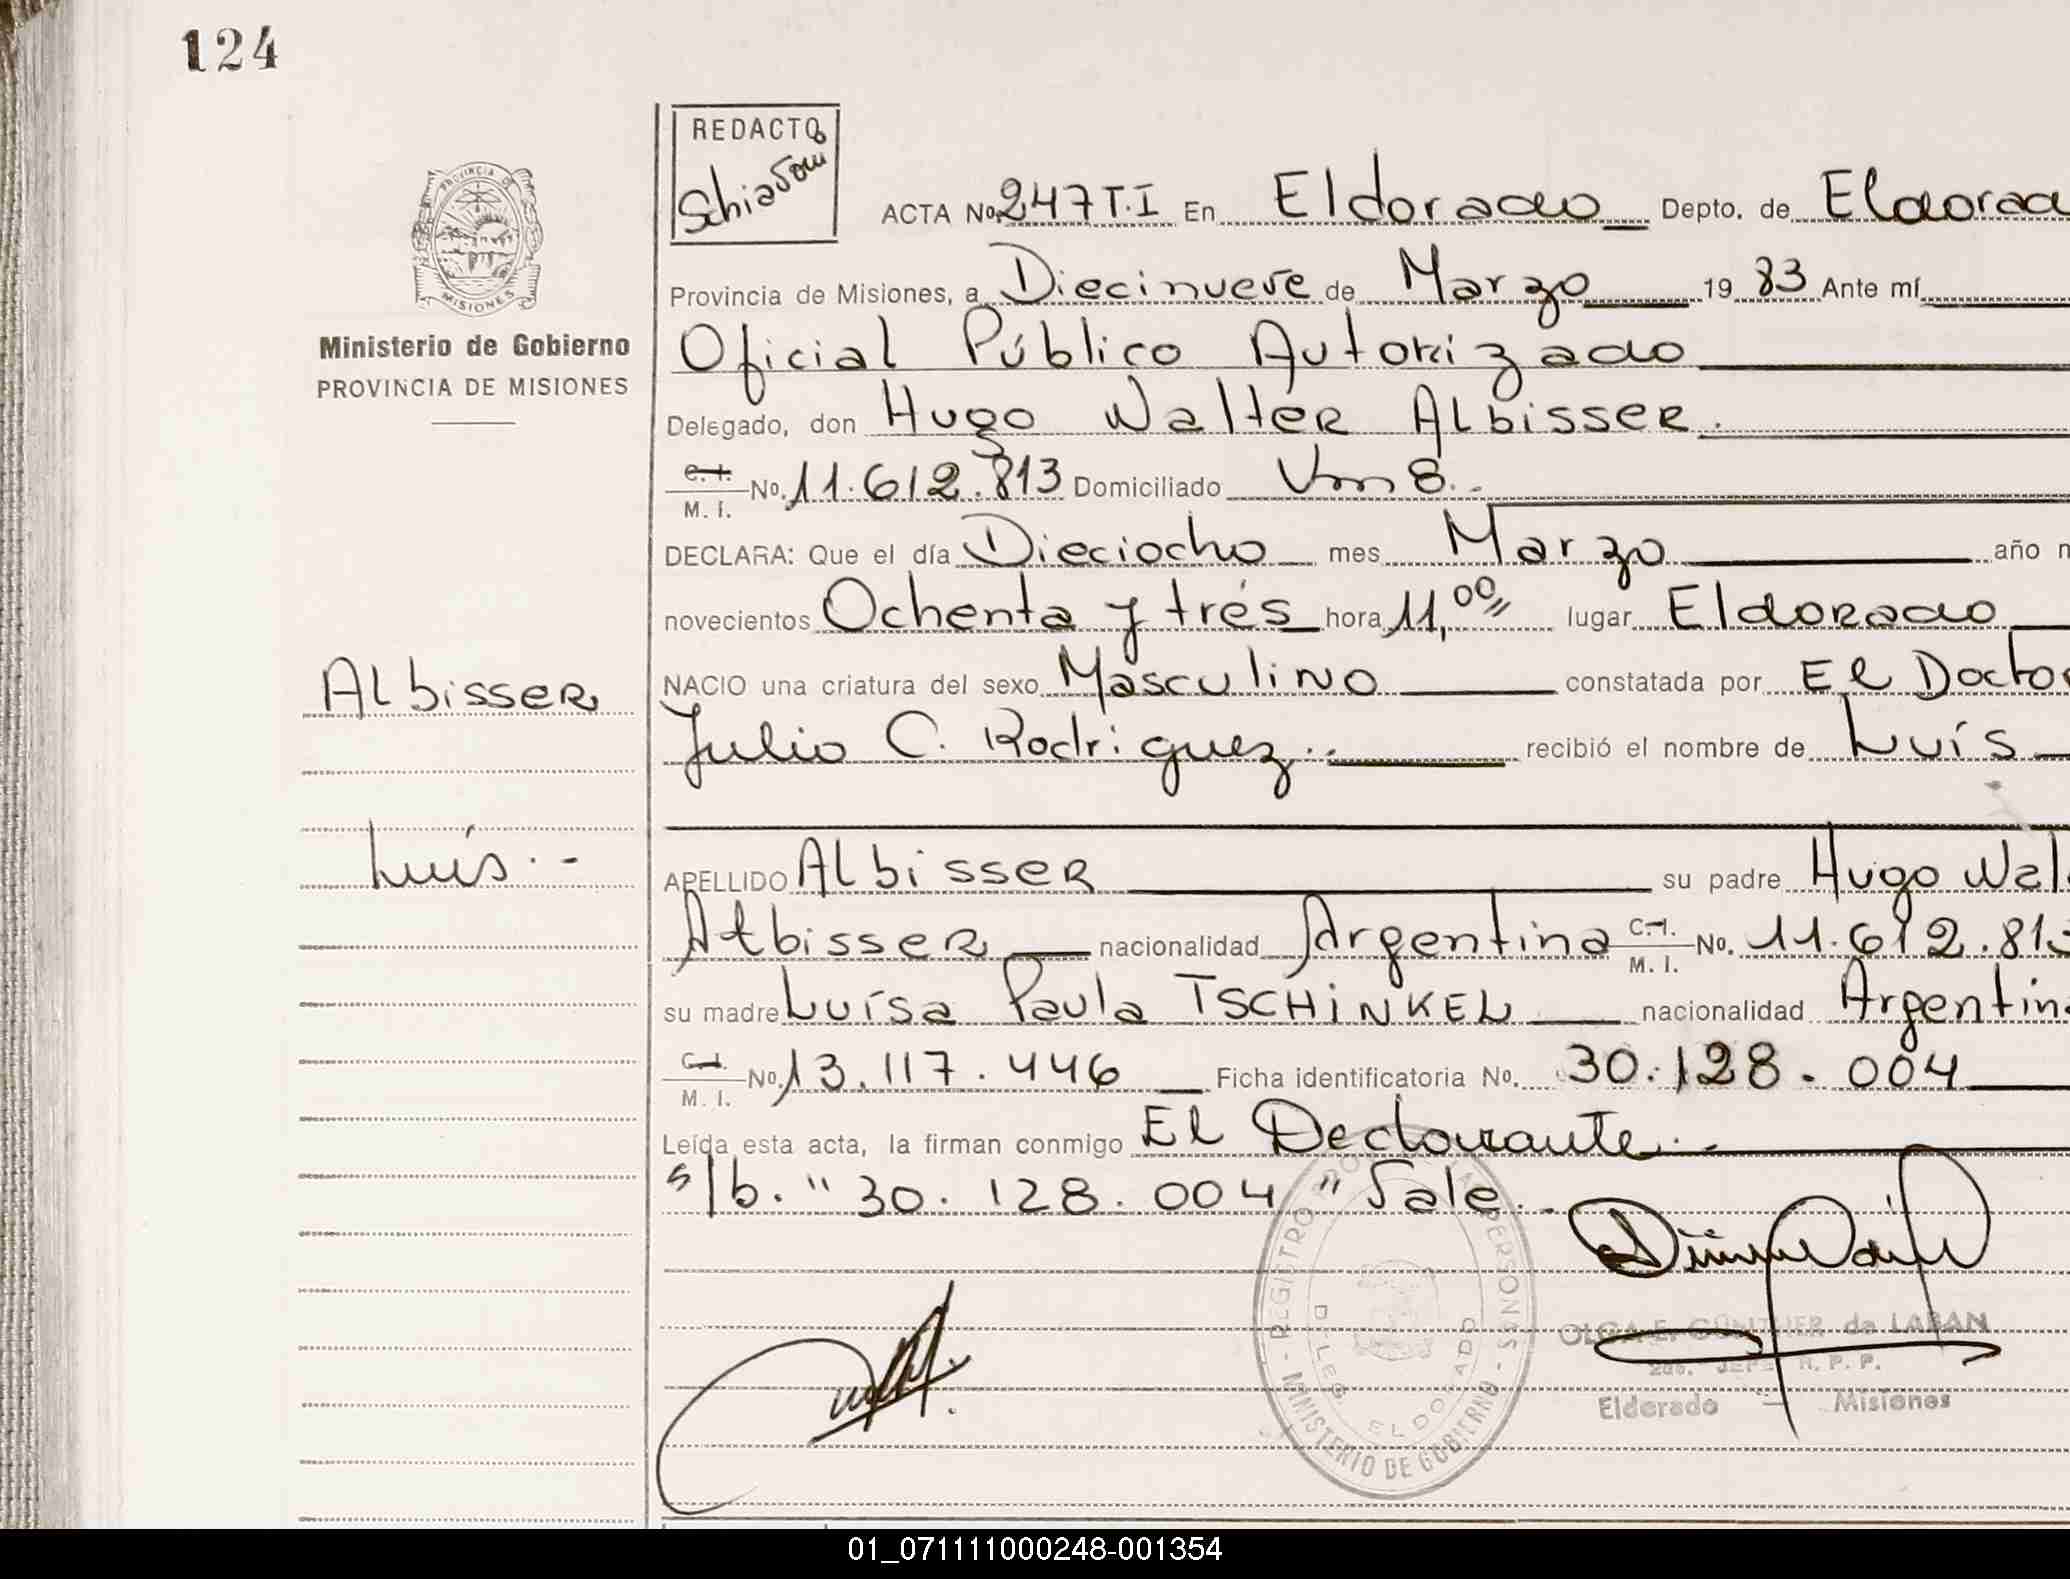 124
REDACTO
Schiavoni
PROVINCIA DE
MISIONES
Ministerio de Gobierno
PROVINCIA DE MISIONES
ACTA No. 247 T.I En Eldorado Depto. de Eldorad
Provincia de Misiones, a Diecinueve de Marzo 19 83 Ante mí
Oficial Público Autorizado
Delegado, don Hugo Walter Albisser.
C. I. M. I. No. 11.612.813 Domiciliado Km 8.-
DECLARA: Que el día Dieciocho mes Marzo año m
novecientos Ochenta y trés hora 11,00 lugar Eldorado
Albisser
NACIO una criatura del sexo Masculino constatada por El Doctor
Julio C. Rodriguez.- recibió el nombre de Luís
Luís.-
APELLIDO Albisser su padre Hugo Wal
Albisser nacionalidad Argentina C. I. M. I. No. 11.612.813
su madre Luísa Paula TSCHINKEL nacionalidad Argentin
C. I. M. I. No. 13.117.446 Ficha identificatoria No. 30.128.004
Leída esta acta, la firman conmigo El Declarante.-
s/b. "30.128.004" Vale.-
REGISTRO PERSONAS - MINISTERIO DE GOBIERNO -
DELEG. ELDORADO
OLGA E. GÜNTHER de LABAN
2do. JEFE R. P. P.
Eldorado - Misiones
01_071111000248-001354